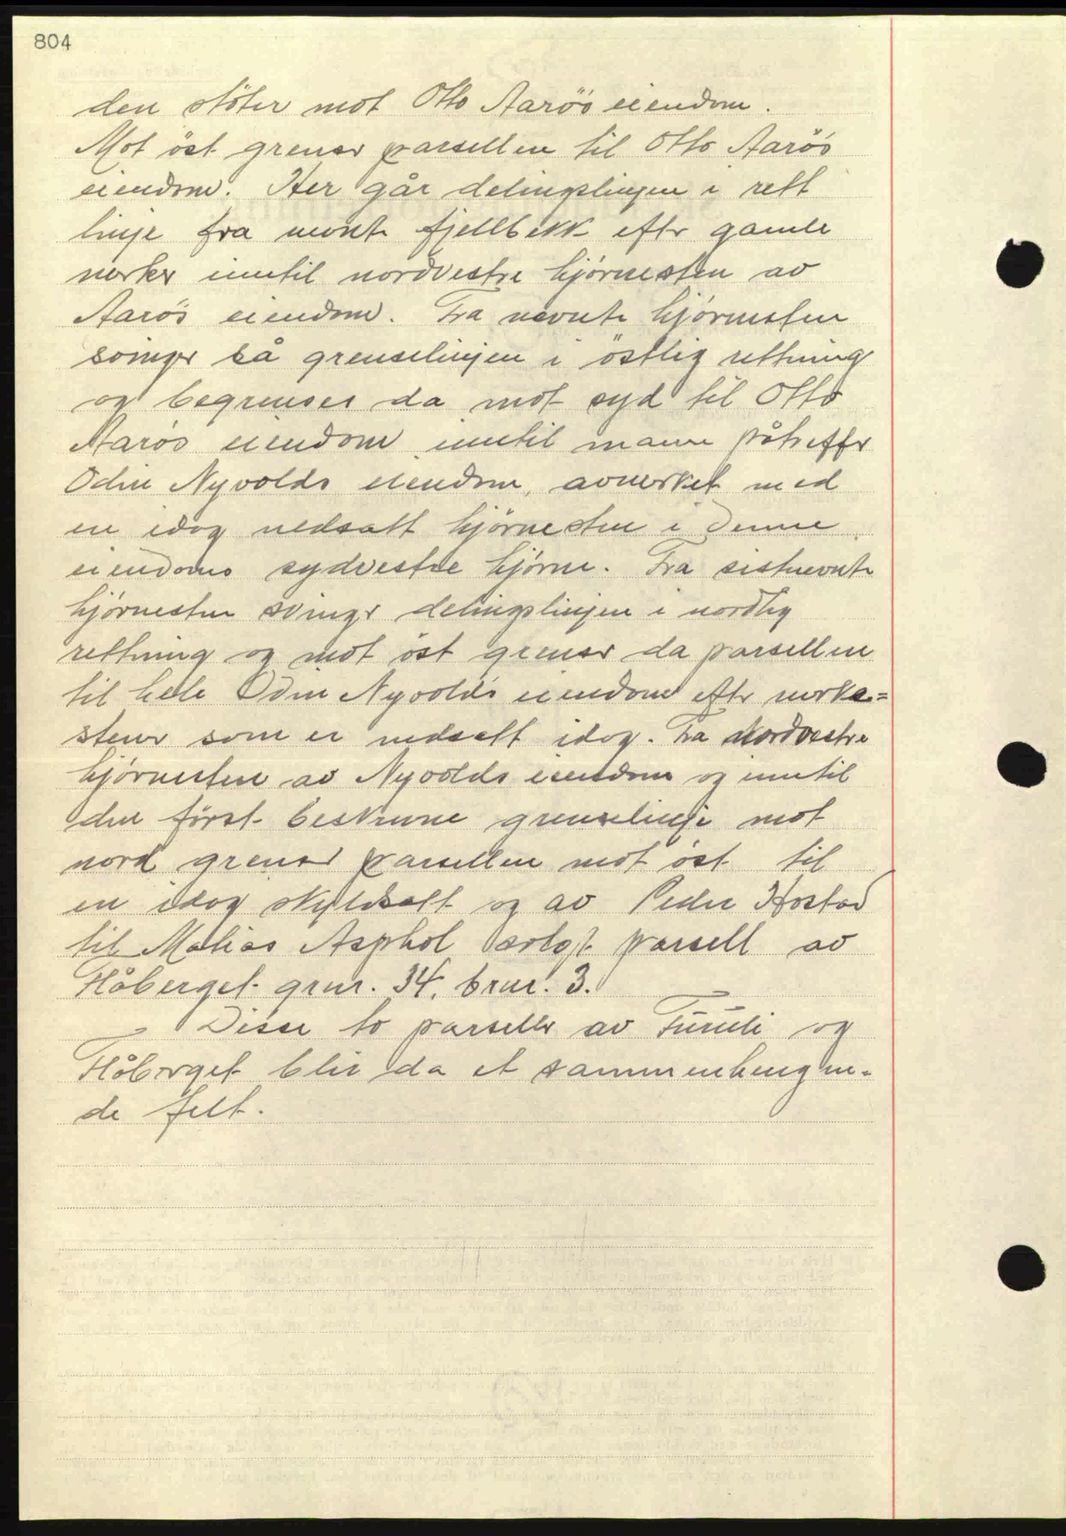 804
den stöter mot Otto Aarös eiendom.
Mot öst grenser parsellen til Otto Aarös
eiendom. Her går delingslinjen i rett
linje fra nevnte fjellbekk efter gamle
merker inntil nordvestre hjörnesten av
Aarös eiendom. Fra nevnte hjörnesten
svinger så grenselinjen i östlig rettning
og begrenses da mot syd til Otto
Aarös eiendom inntil mann påtreffer
Odin Nyvolds eiendom, avmerket med
en idag nedsatt hjörnesten i denne
eiendoms sydvestre hjörne. Fra sistnevnte
hjörnesten svinger delingslinjen i nordlig
rettning og mot öst grenser da parsellen
til hele Odin Nyvolds eiendom efter merke=
stener som er nedsatt idag. Fra Nordvestre
hjörnesten av Nyvolds eiendom og inntil
den först beskrevne grenselinje mot
nord grenser parsellen mot öst til
en idag skyldsatt og av Peder Hostad
til Matias Asphol solgt parsell av
Håberget grnr. 34, brnr. 3.
Disse to parseller av Furuli og
Håberget blir da et sammenhengen-
de felt.